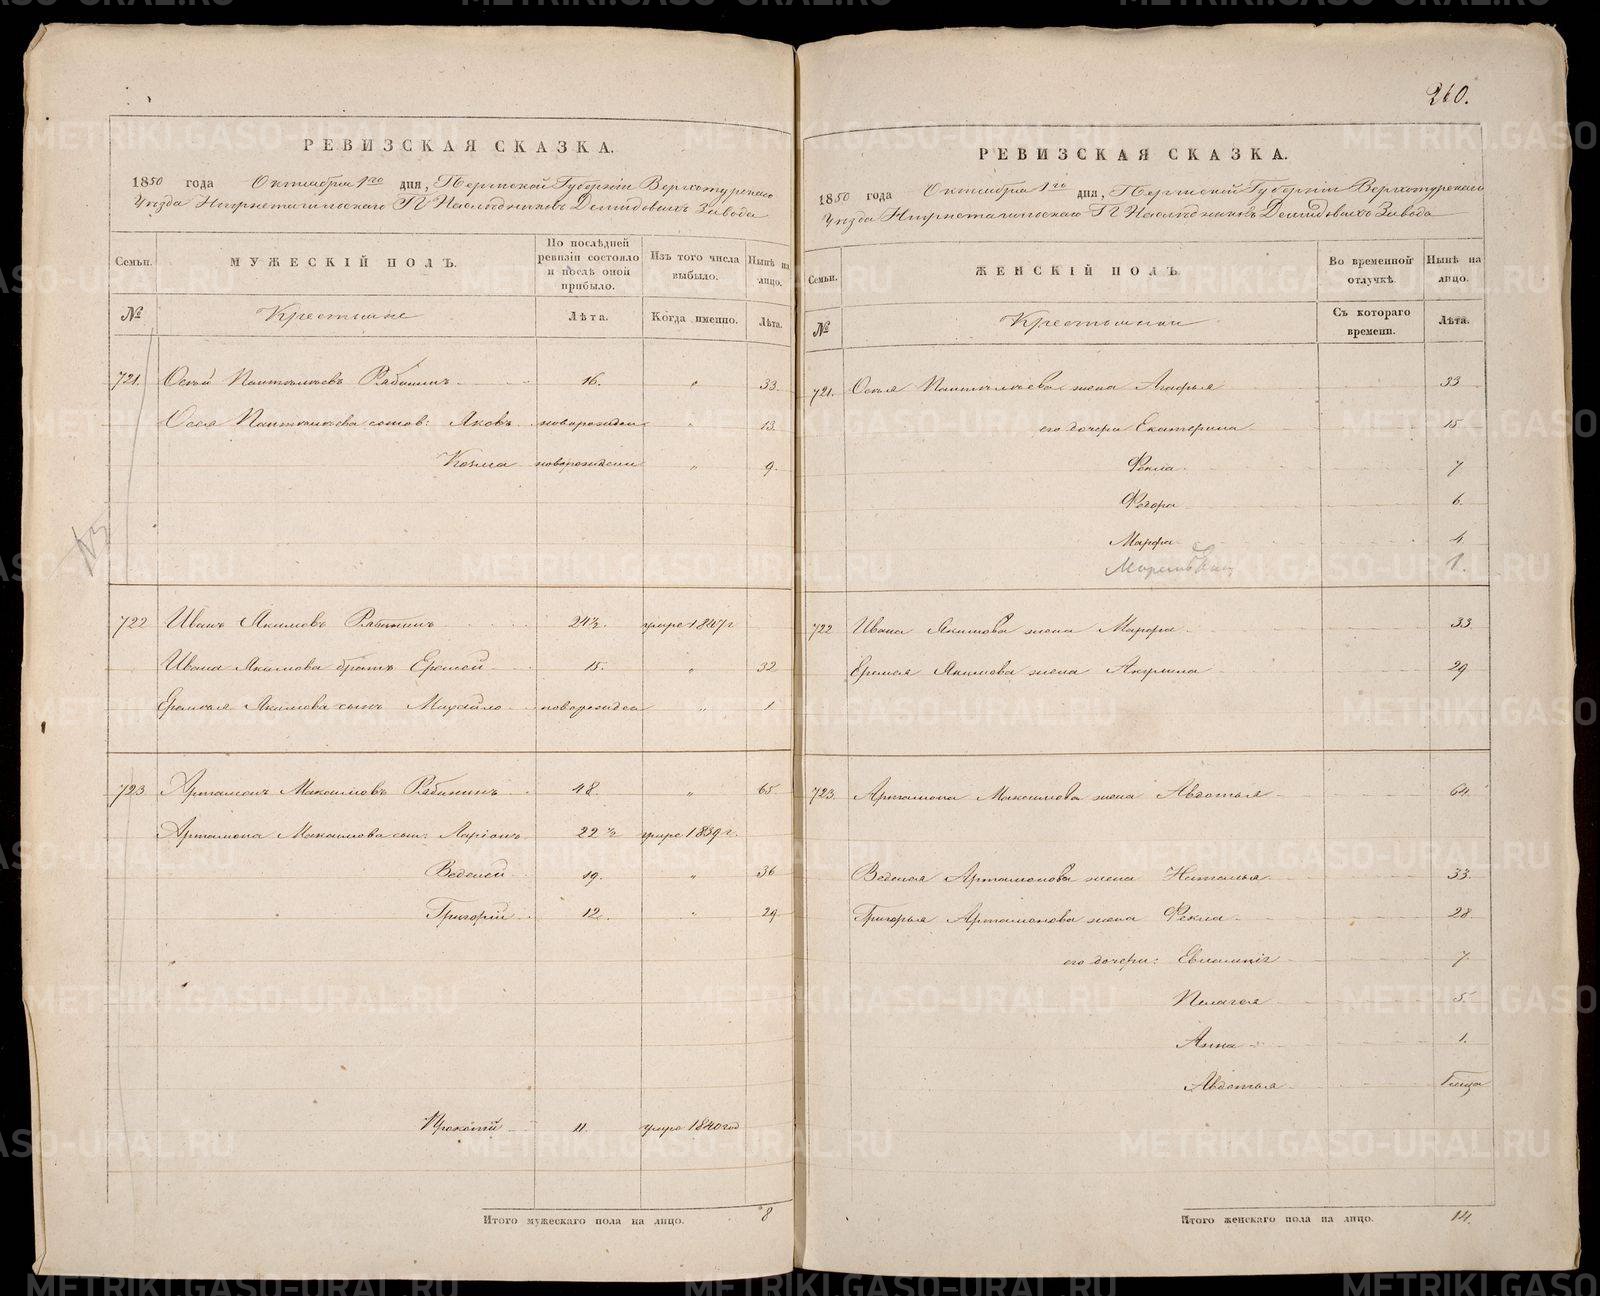 260.
РЕВИЗСКАЯ СКАЗКА.
1850 года Октября 1го дня, Пермской Губерніи Верхотурскаго
Уѣзда Нижнетагильскаго ГГ Наслѣдниковъ Демидовыхъ Завода
Семьи.
МУЖЕСКІЙ ПОЛЪ.
По послѣдней ревизіи состояло и послѣ оной прибыло.
Изъ того числа выбыло.
Нынѣ на лицо.
№
Крестьяне
Лѣта.
Когда именно.
Лѣта.
721. Осѣй Пантелѣевъ Рябининъ 16. " 33.
Осея Пантелѣева сынов: Яковъ новорожден " 13.
Козма новорожден " 9.
722 Иванъ Якимовъ Рябининъ 24½ умре 1847 г
Ивана Якимова братъ Еремей 15. " 32
Еремея Якимова сынъ Михайло новорожден " 1
723 Артамонъ Максимовъ Рябининъ 48. " 65
Артамона Максимова сын: Ларіонъ 22½ умре 1839 г.
Веденей 19. " 36
Григорій 12. " 29
Прокопій 11. умре 1840 год
Итого мужескаго пола на лицо. 8
РЕВИЗСКАЯ СКАЗКА.
1850 года Октября 1го дня, Пермской Губерніи Верхотурскаго
Уѣзда Нижнетагильскаго ГГ Наслѣдниковъ Демидовыхъ Завода
Семьи.
ЖЕНСКІЙ ПОЛЪ
Во временной отлучкѣ.
Нынѣ на лицо.
№
Крестьянки
Съ котораго времени.
Лѣта.
721. Осея Пантелѣева жена Агафья 33
его дочери Екатерина 15
Фекла 7
Федора 6.
Марфа 4
1.
722 Ивана Якимова жена Марфа 33
Еремея Якимова жена Акулина 29
723. Артамона Максимова жена Авдотья 64.
Веденея Артамонова жена Наталья 33.
Григорья Артамонова жена Фекла 28.
его дочери: 7.
Пелагея 5.
Анна 1.
Авдотья
Итого женскаго пола на лицо. 14.
METRIKI.GASO-URAL.RU